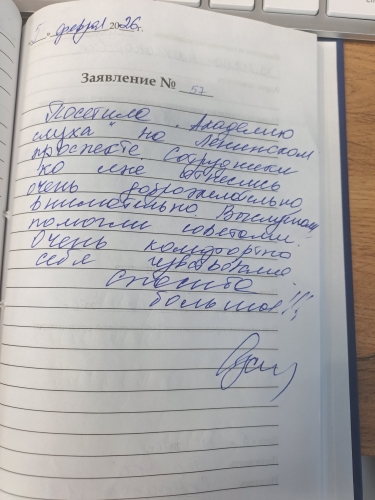 „5“ февраля 2026 г.
Заявление № 57
Посетила „Академию
слуха" на Ленинском
проспекте. Сотрудники
ко мне отнеслись
очень доброжелательно,
внимательно. Выслушали,
помогли советами.
Очень комфортно
себя чувствовала.
Спасибо
большое!!!